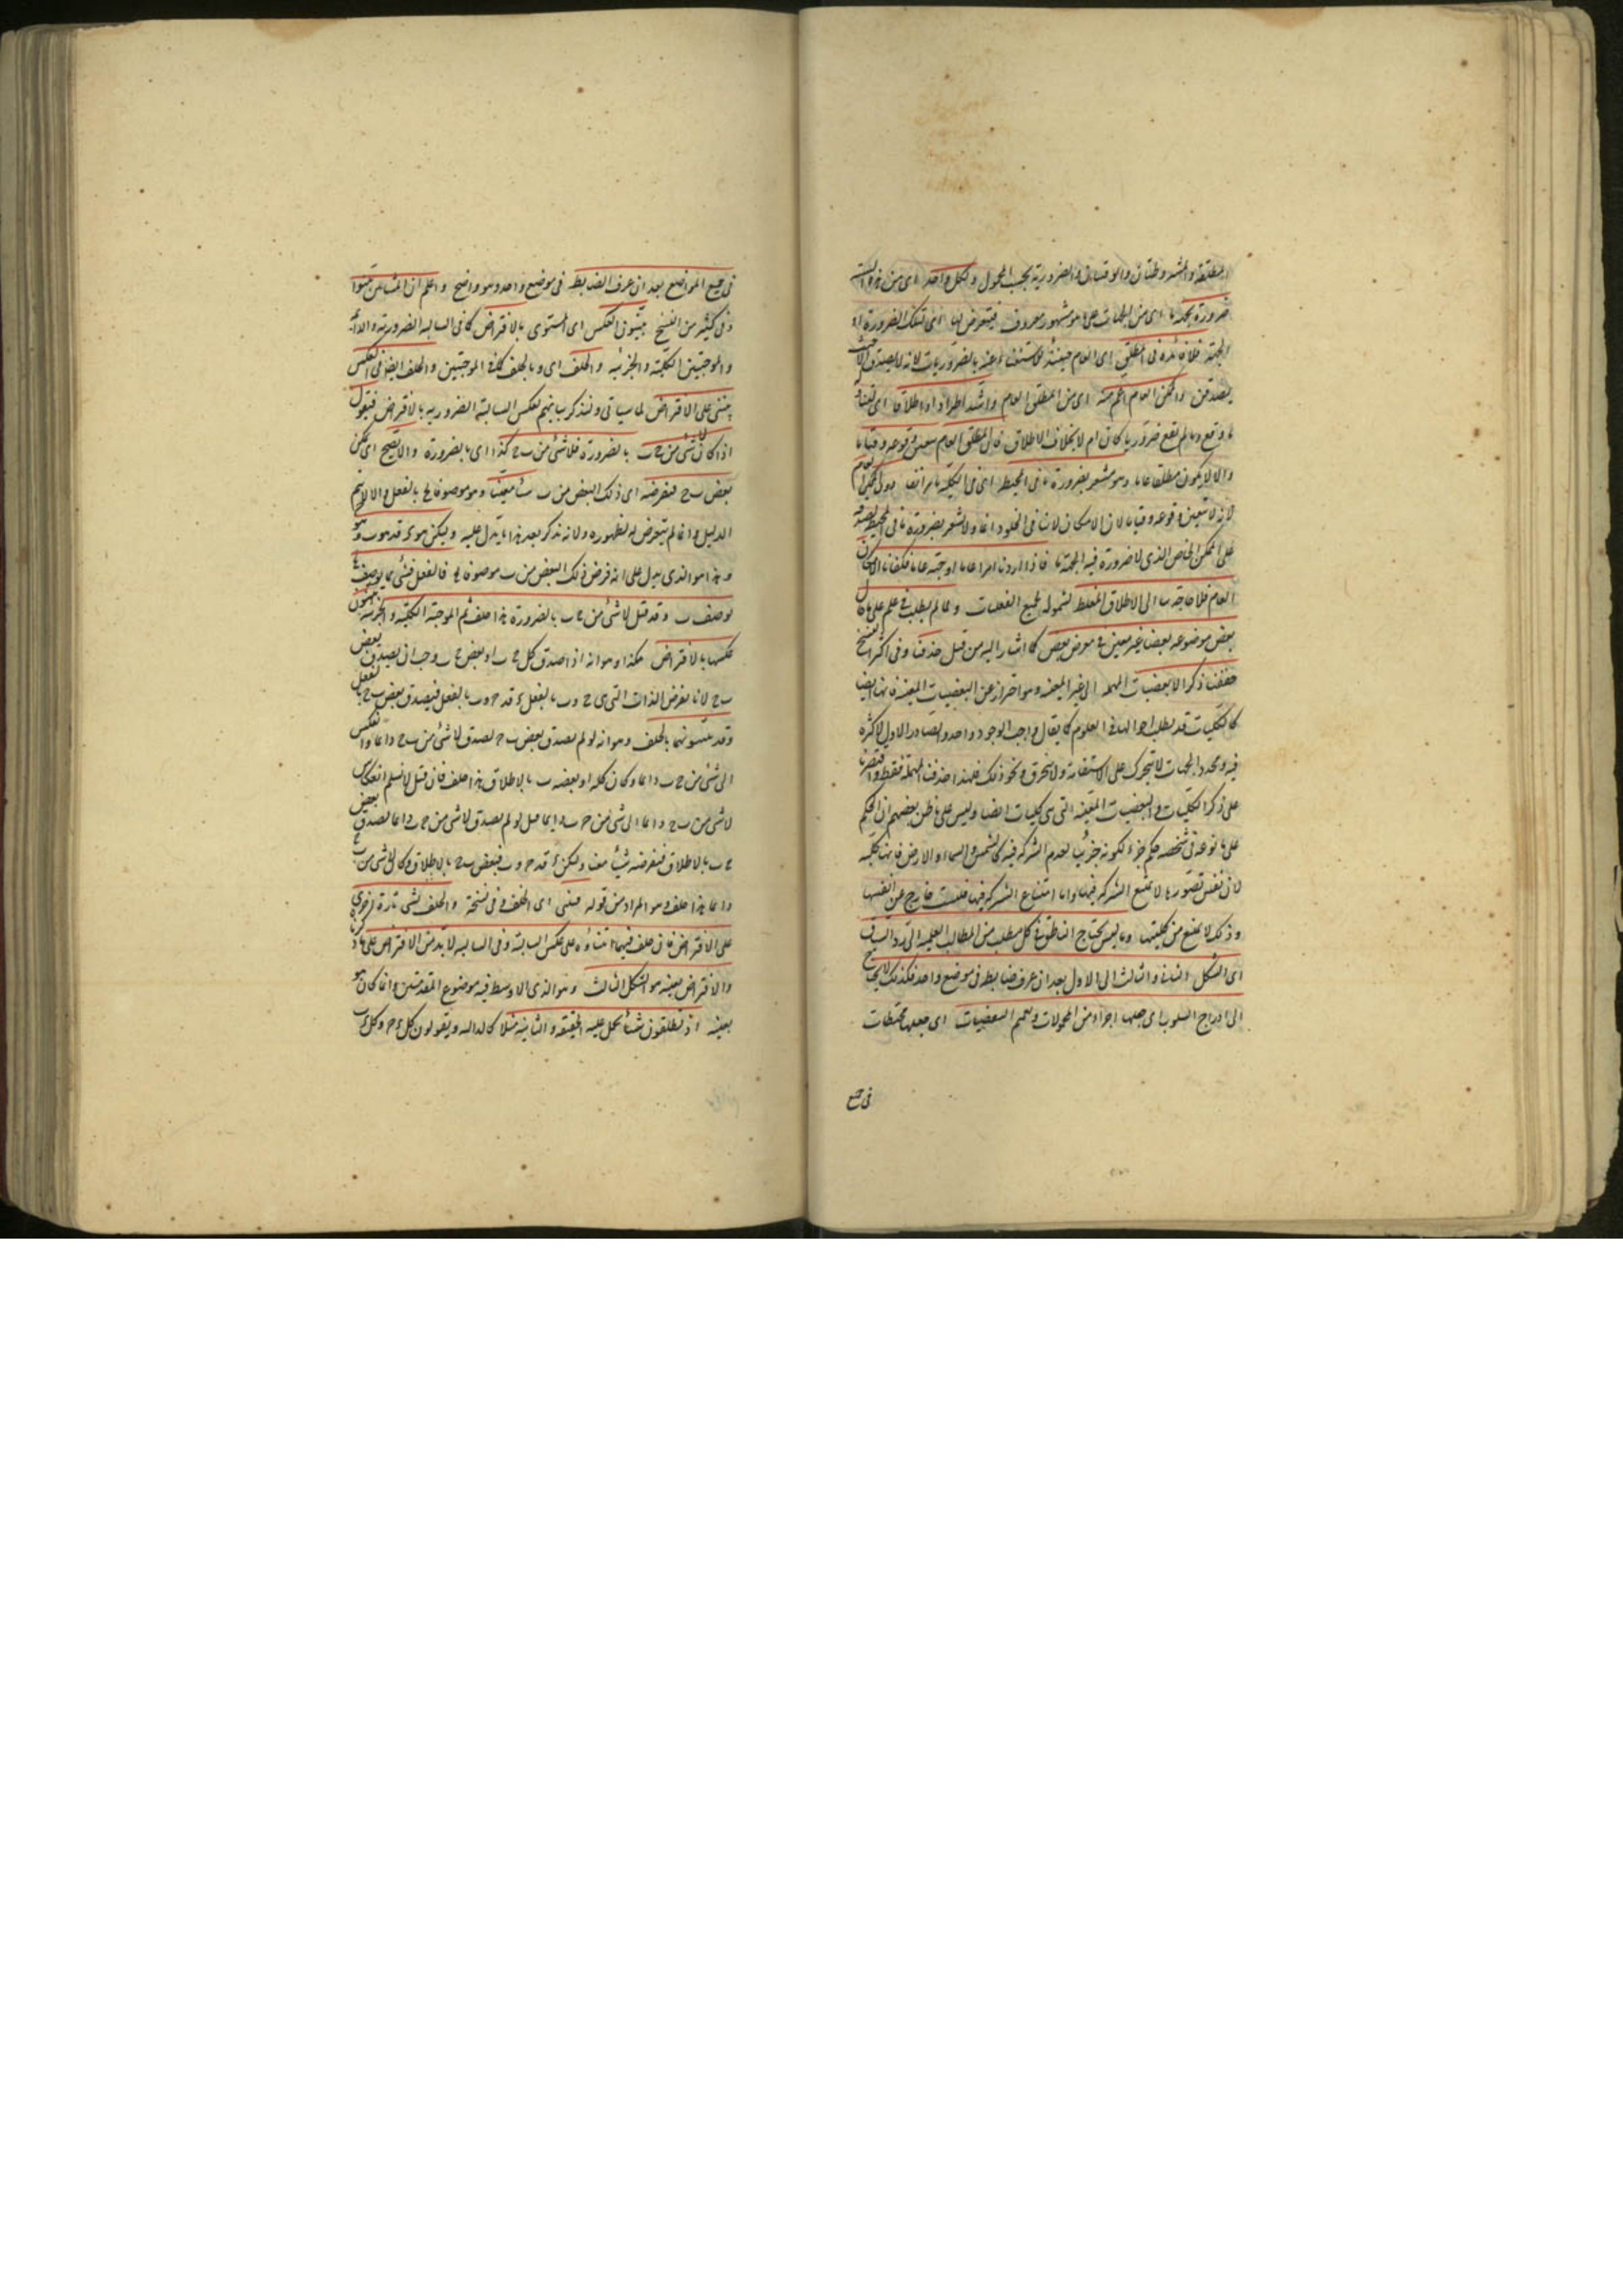 المطلقة والمشروطتان والوقتيتان والضرورية بحسب المحمول ولكل واحد اى من هذه الستة
ضرورة بجهة ما اى من الجهات على ما هو مشهور معروف فيتعرض لها اى لتلك الضرورة او
الجهة فلا فائدة فى المطلق اى العام حينئذ للاستغناء عنه بالضروريات لانه لا يصدق الا حيث
يصدق والممكن العام اعم منه اى من المطلق العام واشد اطرادا واطلاقا اى لتناوله
ما وقع وما لم يقع ضروريا كان ام لا بخلاف الاطلاق فان المطلق العام يتعين وقوعه وقتا ما
والا لا يكون مطلقا عاما وهو مشعر بضرورة ما فى المحيط اى فى الكلية دون الممكن العام
لانه لا يتعين وقوعه وقتا ما لان الامكان لا ينافى الخلو دائما ولا يشعر بضرورة ما فى المحيط لصدقه
على الممكن الخاص الذى لا ضرورة فيه البتة فاذا اردنا امرا عاما او جهة عامة فكفانا الامكان
العام فلا حاجة بنا الى الاطلاق المغلط لشموله لجميع الفعليات ولما لم يطلب فى علم على ما حال
بعض موضوعه بعضا غير معين فى معرض بعض كما اشار اليه من قبل حذفنا وفى اكثر النسخ
حففنا ذكر الا بعضيات المهملة اى الغير المعينة وهو احتراز عن البعضيات المعينة فانها ايضا
كالكليات قد يطلب احوالها فى العلوم كما يقال واجب الوجود واحد والصادر الاول لا كثرة
فيه ومحدد الجهات لا يتحرك على الاستقامة ولا ينخرق ونحو ذلك فلهذا حذفت المهملة فقط واقتصرنا
على ذكر الكليات والبعضيات المعينة التى هى كليات ايضا وليس على ما ظن بعضهم ان الحكم
على ما نوعه فى شخصه حكم جزئى لكونه جزئيا لعدم الشركة فيه كالشمس والسماء والارض فانها كلية
لان نفس تصورها لا يمنع الشركة فيها واما امتناع الشركة فيها فلسبب خارج عن انفسها
وذلك لا يمنع من كليتها وما ليس يحتاج الناطق فى كل مطلب من المطالب العلمية الى رد السياق
اى الشكل الثانى والثالث الى الاول بعد ان عرف ضابطه فى موضع واحد فكذلك لا يحتاج
الى ادراج السلوب اى جعلها اجزاء من المحمولات وتعميم البعضيات اى جعلها محيطات
فى جميع
فى جميع المواضع بعد ان عرف الضابط فى موضع واحد وهو واضح واعلم ان المشائين بينوا
وفى كثير من النسخ يبينون العكس اى المستوى بالافتراض كما فى السالبة الضرورية والدائمة
والموجبتين الكلية والجزئية والخلف اى وبالخلف كما فى الموجبتين والخلف ايضا فى العكس
يبتنى على الافتراض لما سياتى ولنذكر بيانهم لعكس السالبة الضرورية بالافتراض فنقول
اذا كان لا شئ من ج ب بالضرورة فلا شئ من ب ج كذا اى بالضرورة والا يصح اى يمكن
بعض ب ج فنفرضه اى ذلك البعض من ب شيئا معينا وهو موصوفا بج بالفعل والا لا يتم
الدليل وانما لم يتعرض له لظهوره ولانه يذكر بعد هذا ما يدل عليه وليكن هو ء فد هو ب وهو ج
وهذا هو الذى يدل على انه فرض ذلك البعض من ب موصوفا بج بالفعل فشئ مما يوصف بج
يوصف ب وقد قيل لا شئ من ج ب بالضرورة هذا خلف ثم الموجبة الكلية والجزئية يبينون
عكسها بالافتراض هكذا وهو انه اذا صدق كل ج ب او بعض ج ب وجب ان يصدق بعض
ب ج لانا نفرض الذات التى هى ج وب بالفعل ء فد ج وب بالفعل فيصدق بعض ب ج بالفعل
وقد يبينونها بالخلف وهو انه لو لم يصدق بعض ب ج لصدق لا شئ من ب ج دائما وانعكس
الى لا شئ من ج ب دائما وكان كله او بعضه ب بالاطلاق هذا خلف فان قيل لا نسلم انعكاس
لا شئ من ب ج دائما الى لا شئ من ج ب دائما قيل لو لم يصدق لا شئ من ج ب دائما لصدق بعض
ج ب بالاطلاق فنفرضه شيئا معينا وليكن ء فد ج وب فبعض ب ج بالاطلاق وكان لا شئ من ب ج
دائما هذا خلف وهو المراد من قوله فيبتنى اى الخلف وفى نسخة والخلف يبتنى تارة اخرى
على الافتراض فان خلف فيهما ابتناؤه على عكس السالبة وفى السالبة لا بد من الافتراض على ما ذكرنا
والافتراض بعينه هو الشكل الثالث وهو الذى الاوسط فيه موضوع المقدمتين وانما كان هو
بعينه اذ يطلقون شيئا يحمل عليه الحقيقة والثانية مثلا كالدال ويقولون كل ء ج وكل ء ب